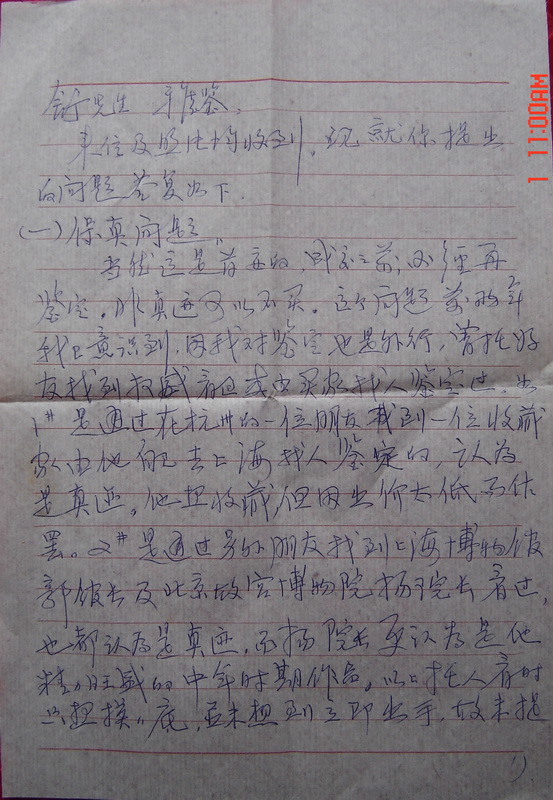 舒先生 雅鉴、
来信及照片均收到，现就你提出
的问题答复如下.
(一) 保真问题、
当然这是首要的，成交之前，必经再
鉴定，非真迹可以不买。这个问题前两年
我已意识到，因我对鉴定也是外行，曾托好
友找到权威看过或由买家找人鉴定过，如
1# 是通过在杭州的一位朋友找到一位收藏
家由他自己去上海找人鉴定的，认为
是真迹，他想收藏，但因出价太低而作
罢。2# 是通过另外朋友找到上海博物馆
郭馆长及北京故宫博物院杨院长看过，
也都认为是真迹，而杨院长更认为是他
精力旺盛的中年时期作品。以上托人看时
只想摸摸底，并未想到立即出手，故未提
1)
1 11:00AM